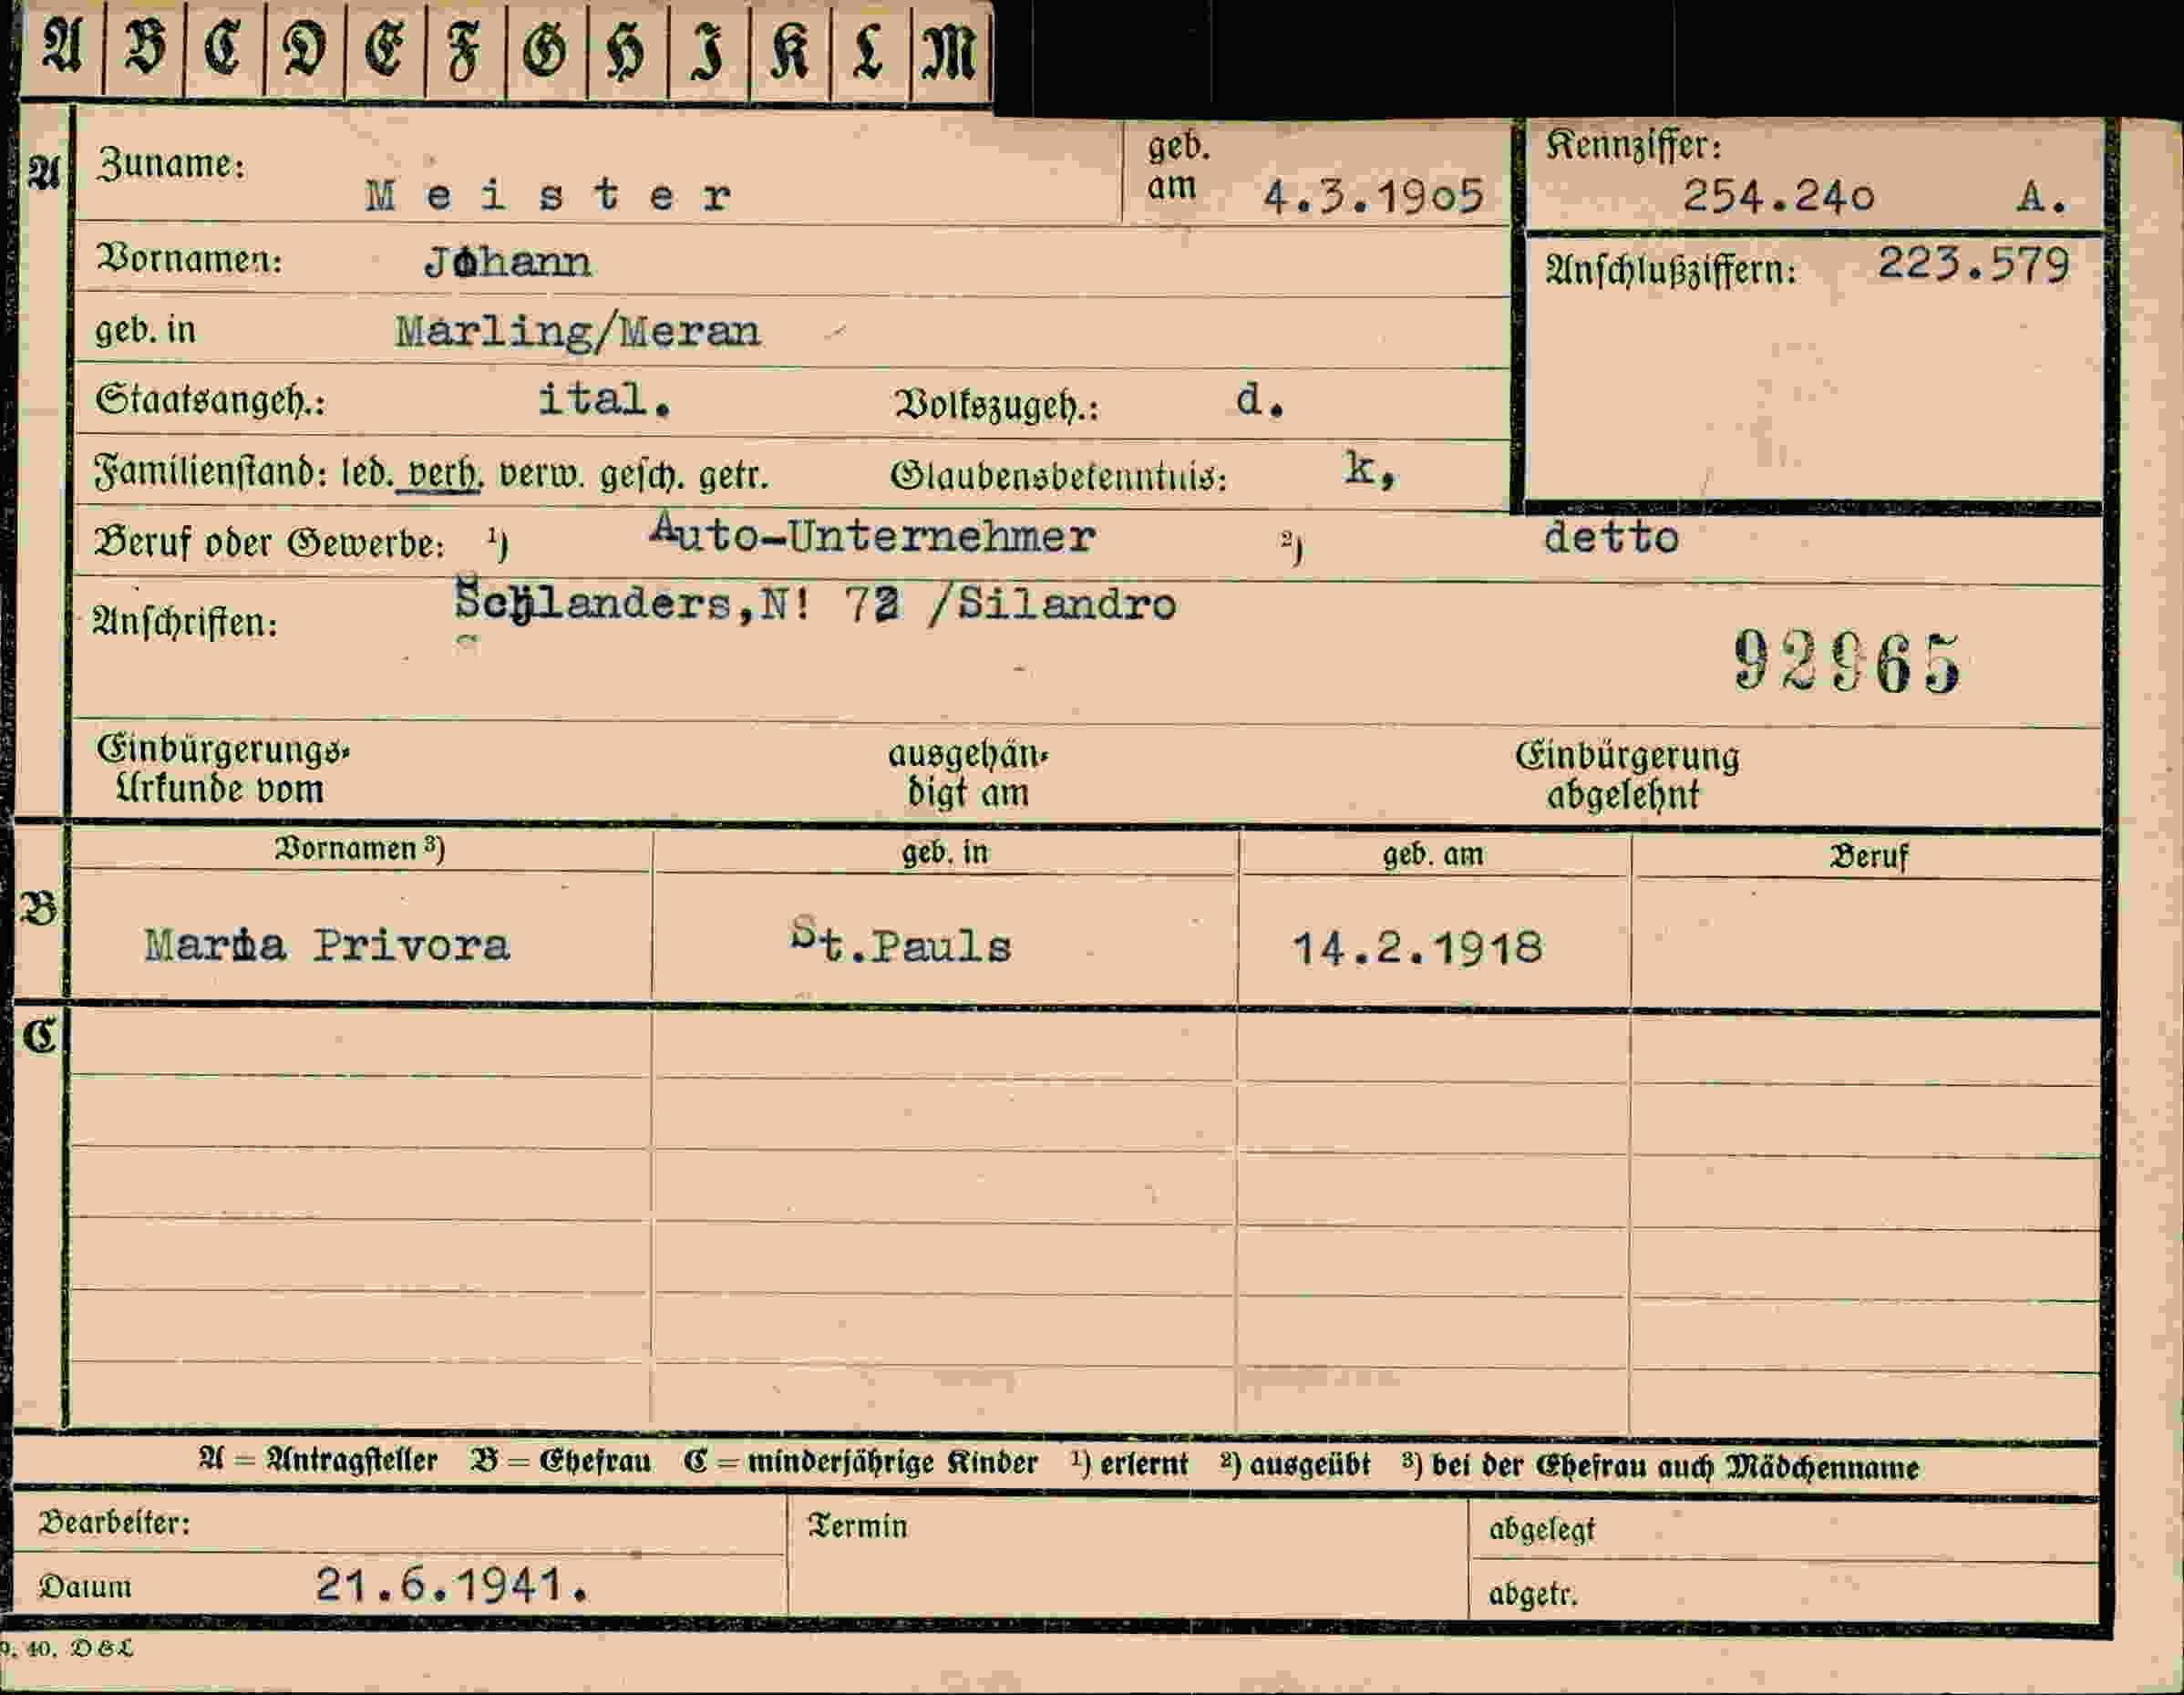 A B C D E F G H I K L M
A Zuname: Meister geb. am 4.3.1905 Kennziffer: 254.240 A.
Vornamen: Johann Anschlußziffern: 223.579
geb. in Marling/Meran
Staatsangeh.: ital. Volkszugeh.: d.
Familienstand: led. verh. verw. gesch. getr. Glaubensbekenntnis: k,
Beruf oder Gewerbe: ¹) Auto-Unternehmer ²) detto
Anschriften: Schlanders,N! /Silandro
92965
Einbürgerungs- ausgehän- Einbürgerung
Urkunde vom digt am abgelehnt
Vornamen ³) geb. in geb. am Beruf
B Maria Privora St.Pauls 14.2.1918
C
A = Antragsteller B = Ehefrau C = minderjährige Kinder ¹) erlernt ²) ausgeübt ³) bei der Ehefrau auch Mädchenname
Bearbeiter: Termin abgelegt
Datum 21.6.1941. abgetr.
40. DGL